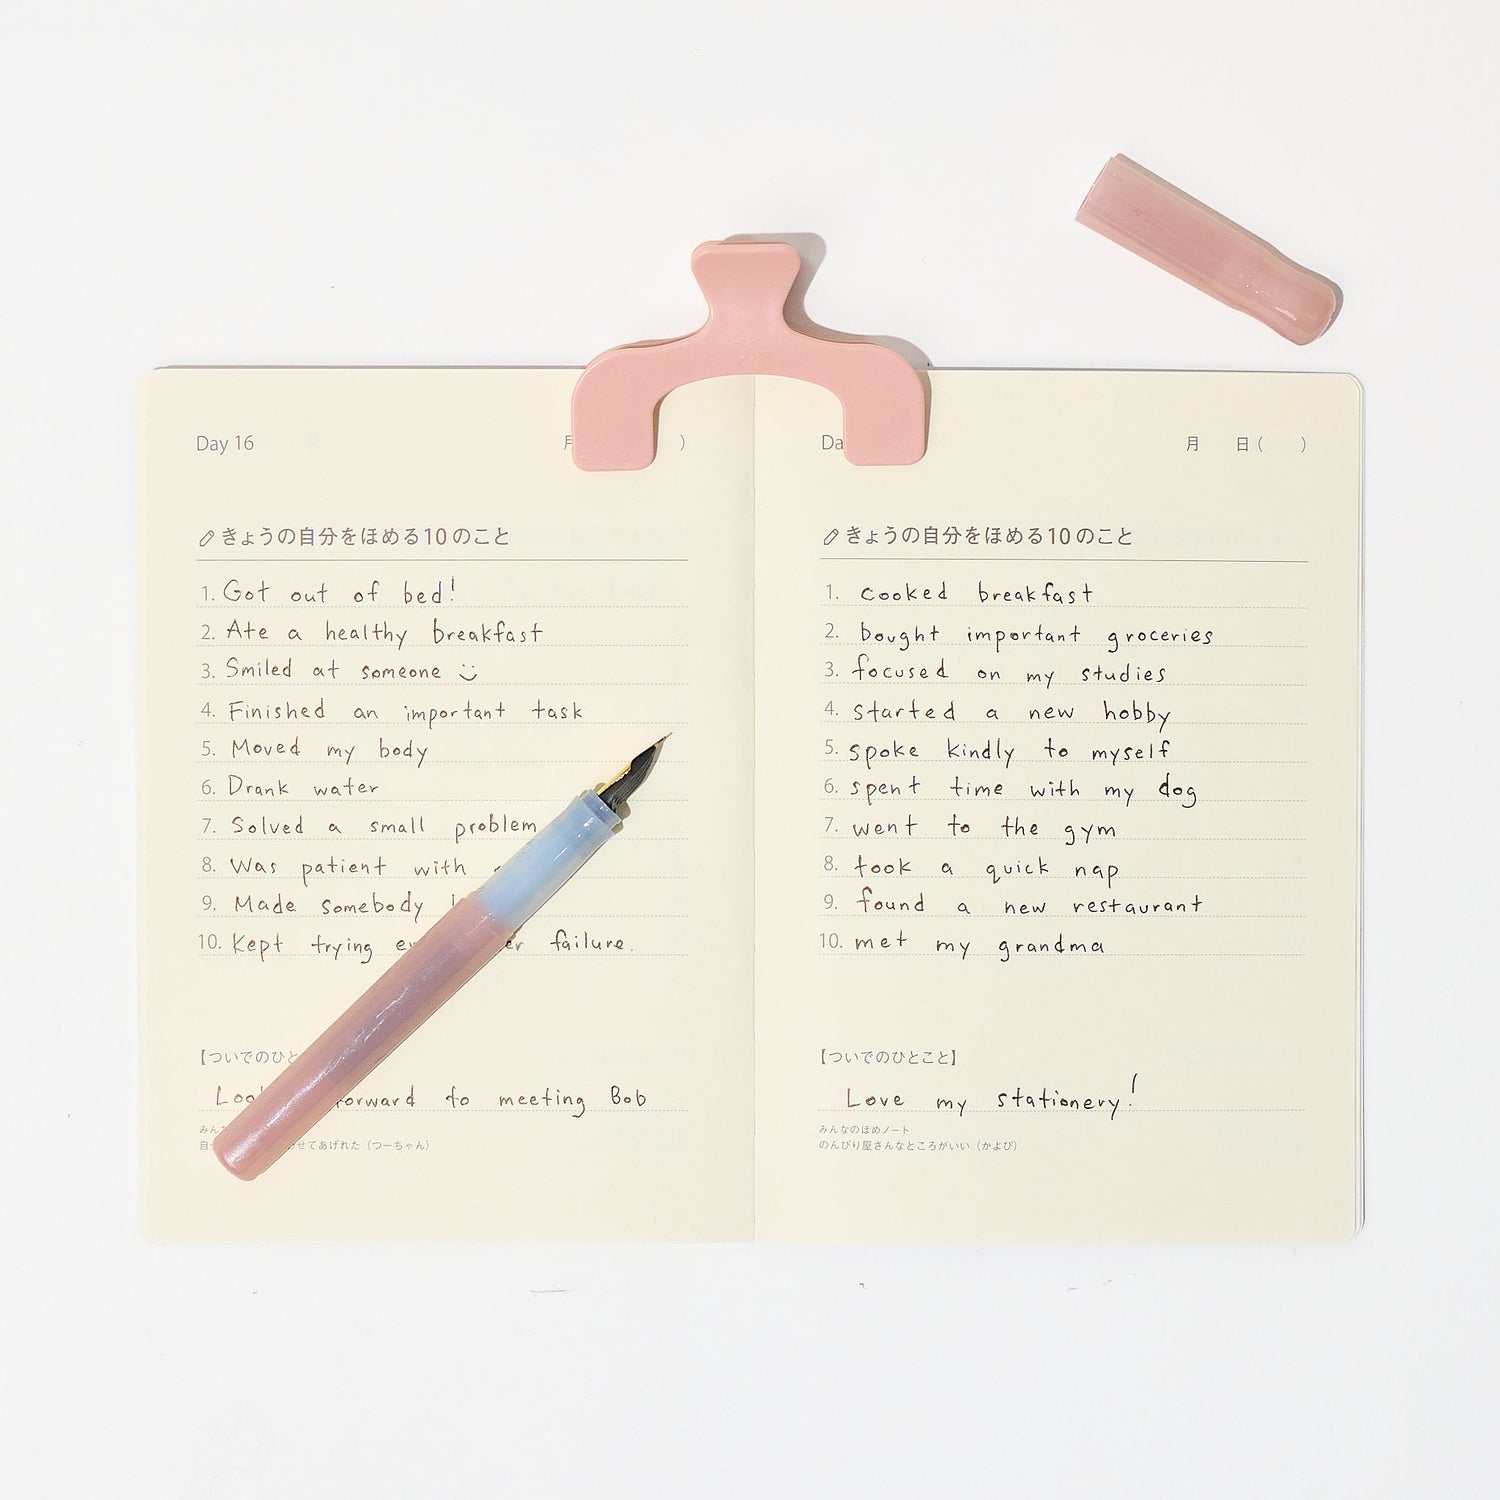 Day 16 )
きょうの自分をほめる10のこと
1. Got out of bed!
2. Ate a healthy breakfast
3. Smiled at someone
4. Finished an important task
5. Moved my body
6. Drank water
7. Solved a small problem
8. Was patient with
9. Made somebody
10. Kept trying failure.
【ついでのひと
forward to meeting Bob
せてあげれた（つーちゃん）
月 日( )
きょうの自分をほめる10のこと
1. cooked breakfast
2. bought important groceries
3. focused on my studies
4. started a new hobby
5. spoke kindly to myself
6. spent time with my dog
7. went to the gym
8. took a quick nap
9. found a new restaurant
10. met my grandma
【ついでのひとこと】
Love my stationery!
みんなのほめノート
のんびり屋さんなところがいい（かよぴ）